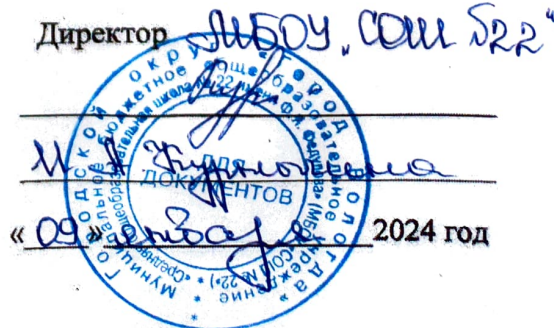 Директор МБОУ "СОШ №22"
И. А.
ДЛЯ
ДОКУМЕНТОВ
« 09 » января 2024 год
Городской округ "Город Вологда"
Муниципальное бюджетное общеобразовательное учреждение
"Средняя общеобразовательная школа № 22 имени Ф.Я. Федулова" (МБОУ "СОШ № 22")